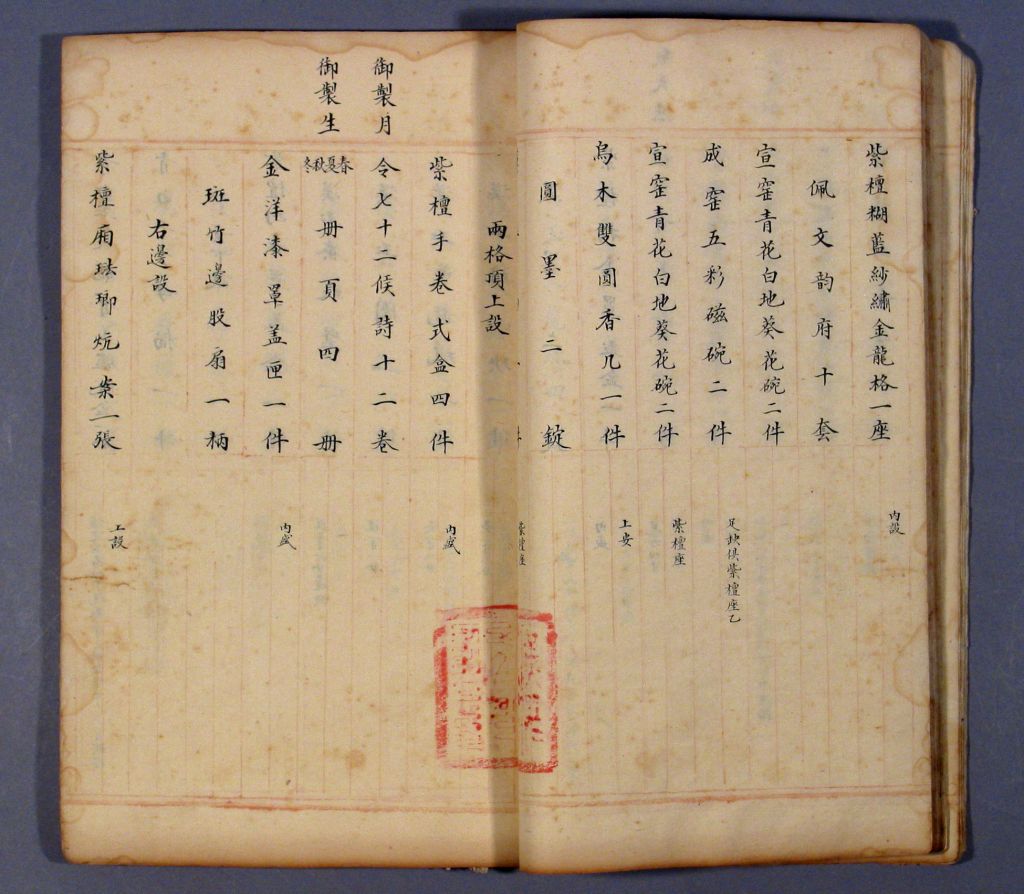 紫檀糊藍紗繡金龍格一座
內設
佩文韵府十套
宣窑青花白地葵花碗二件
成窑五彩磁碗二件
足缺俱紫檀座乙
宣窑青花白地葵花碗二件
紫檀座
烏木雙圓香几一件
上安
圓墨二錠
紫檀座
兩格頂上設
紫檀手卷式盒四件
內盛
御製月令七十二候詩十二卷
御製生春夏秋冬冊頁四冊
金洋漆罩盖匣一件
內盛
斑竹邊股扇一柄
右邊設
紫檀廂珐瑯炕案一張
上設